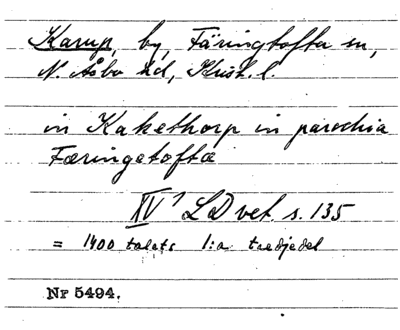 Karup, by, Färingtofta sn,
N. Åsbo hd, Krist. l.
in Kakethorp in parochia
Færingetoftæ
XV¹ LD vet. s. 135
= 1400 talets 1:a tredjedel
Nr 5494.